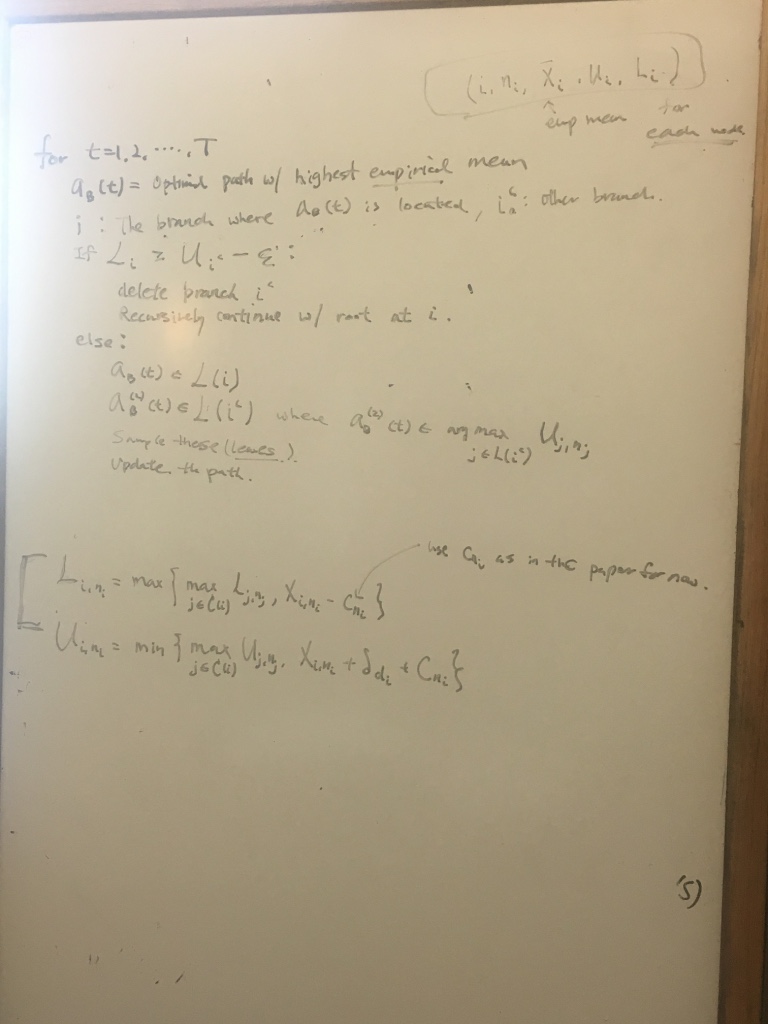 (i, n_i, X̄_i, U_i, L_i)
↑ emp mean for
each node
for t=1, 2, ‥‥, T
a_B(t) = optimal path w/ highest empirical mean
i : The branch where a_B(t) is located, i^c : other branch.
If L_i ≥ U_{i^c} - ε :
delete branch i^c
Recursively continue w/ root at i.
else:
a_B(t) ∈ L(i)
a_B^{(2)}(t) ∈ L(i^c) where a_B^{(2)}(t) ∈ argmax_{j∈L(i^c)} U_{j,n_j}
Sample these (leaves).
Update the path.
use C_{n_i} as in the paper for now.
L_{i,n_i} = max { max_{j∈C(i)} L_{j,n_j}, X_{i,n_i} - C_{n_i} }
U_{i,n_i} = min { max_{j∈C(i)} U_{j,n_j}, X_{i,n_i} + δ_{d_i} + C_{n_i} }